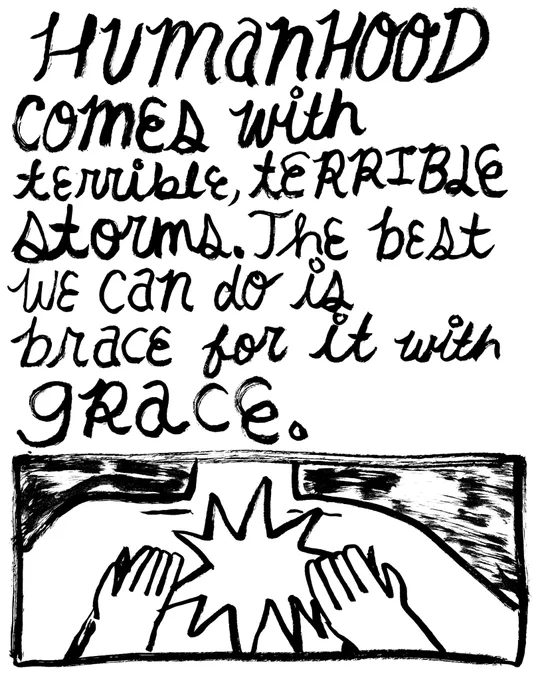 HumanHOOD
comes with
terrible, tERRIBLE
storms. The best
we can do is
brace for it with
gRace.